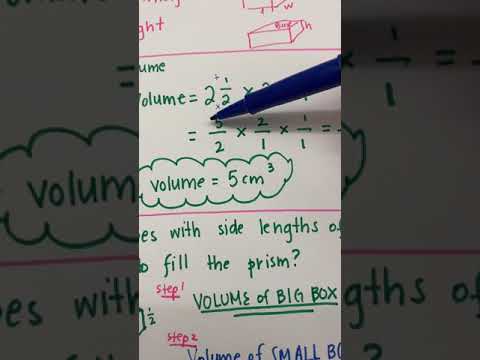 ght
w
h
ume
volume = 2 1/2 × 2
= 5/2 × 2/1 × 1/1 =
volume = 5 cm³
es with side lengths of
o fill the prism?
step 1
VOLUME of BIG BOX
1/2
step 2
Volume of SMALL BO